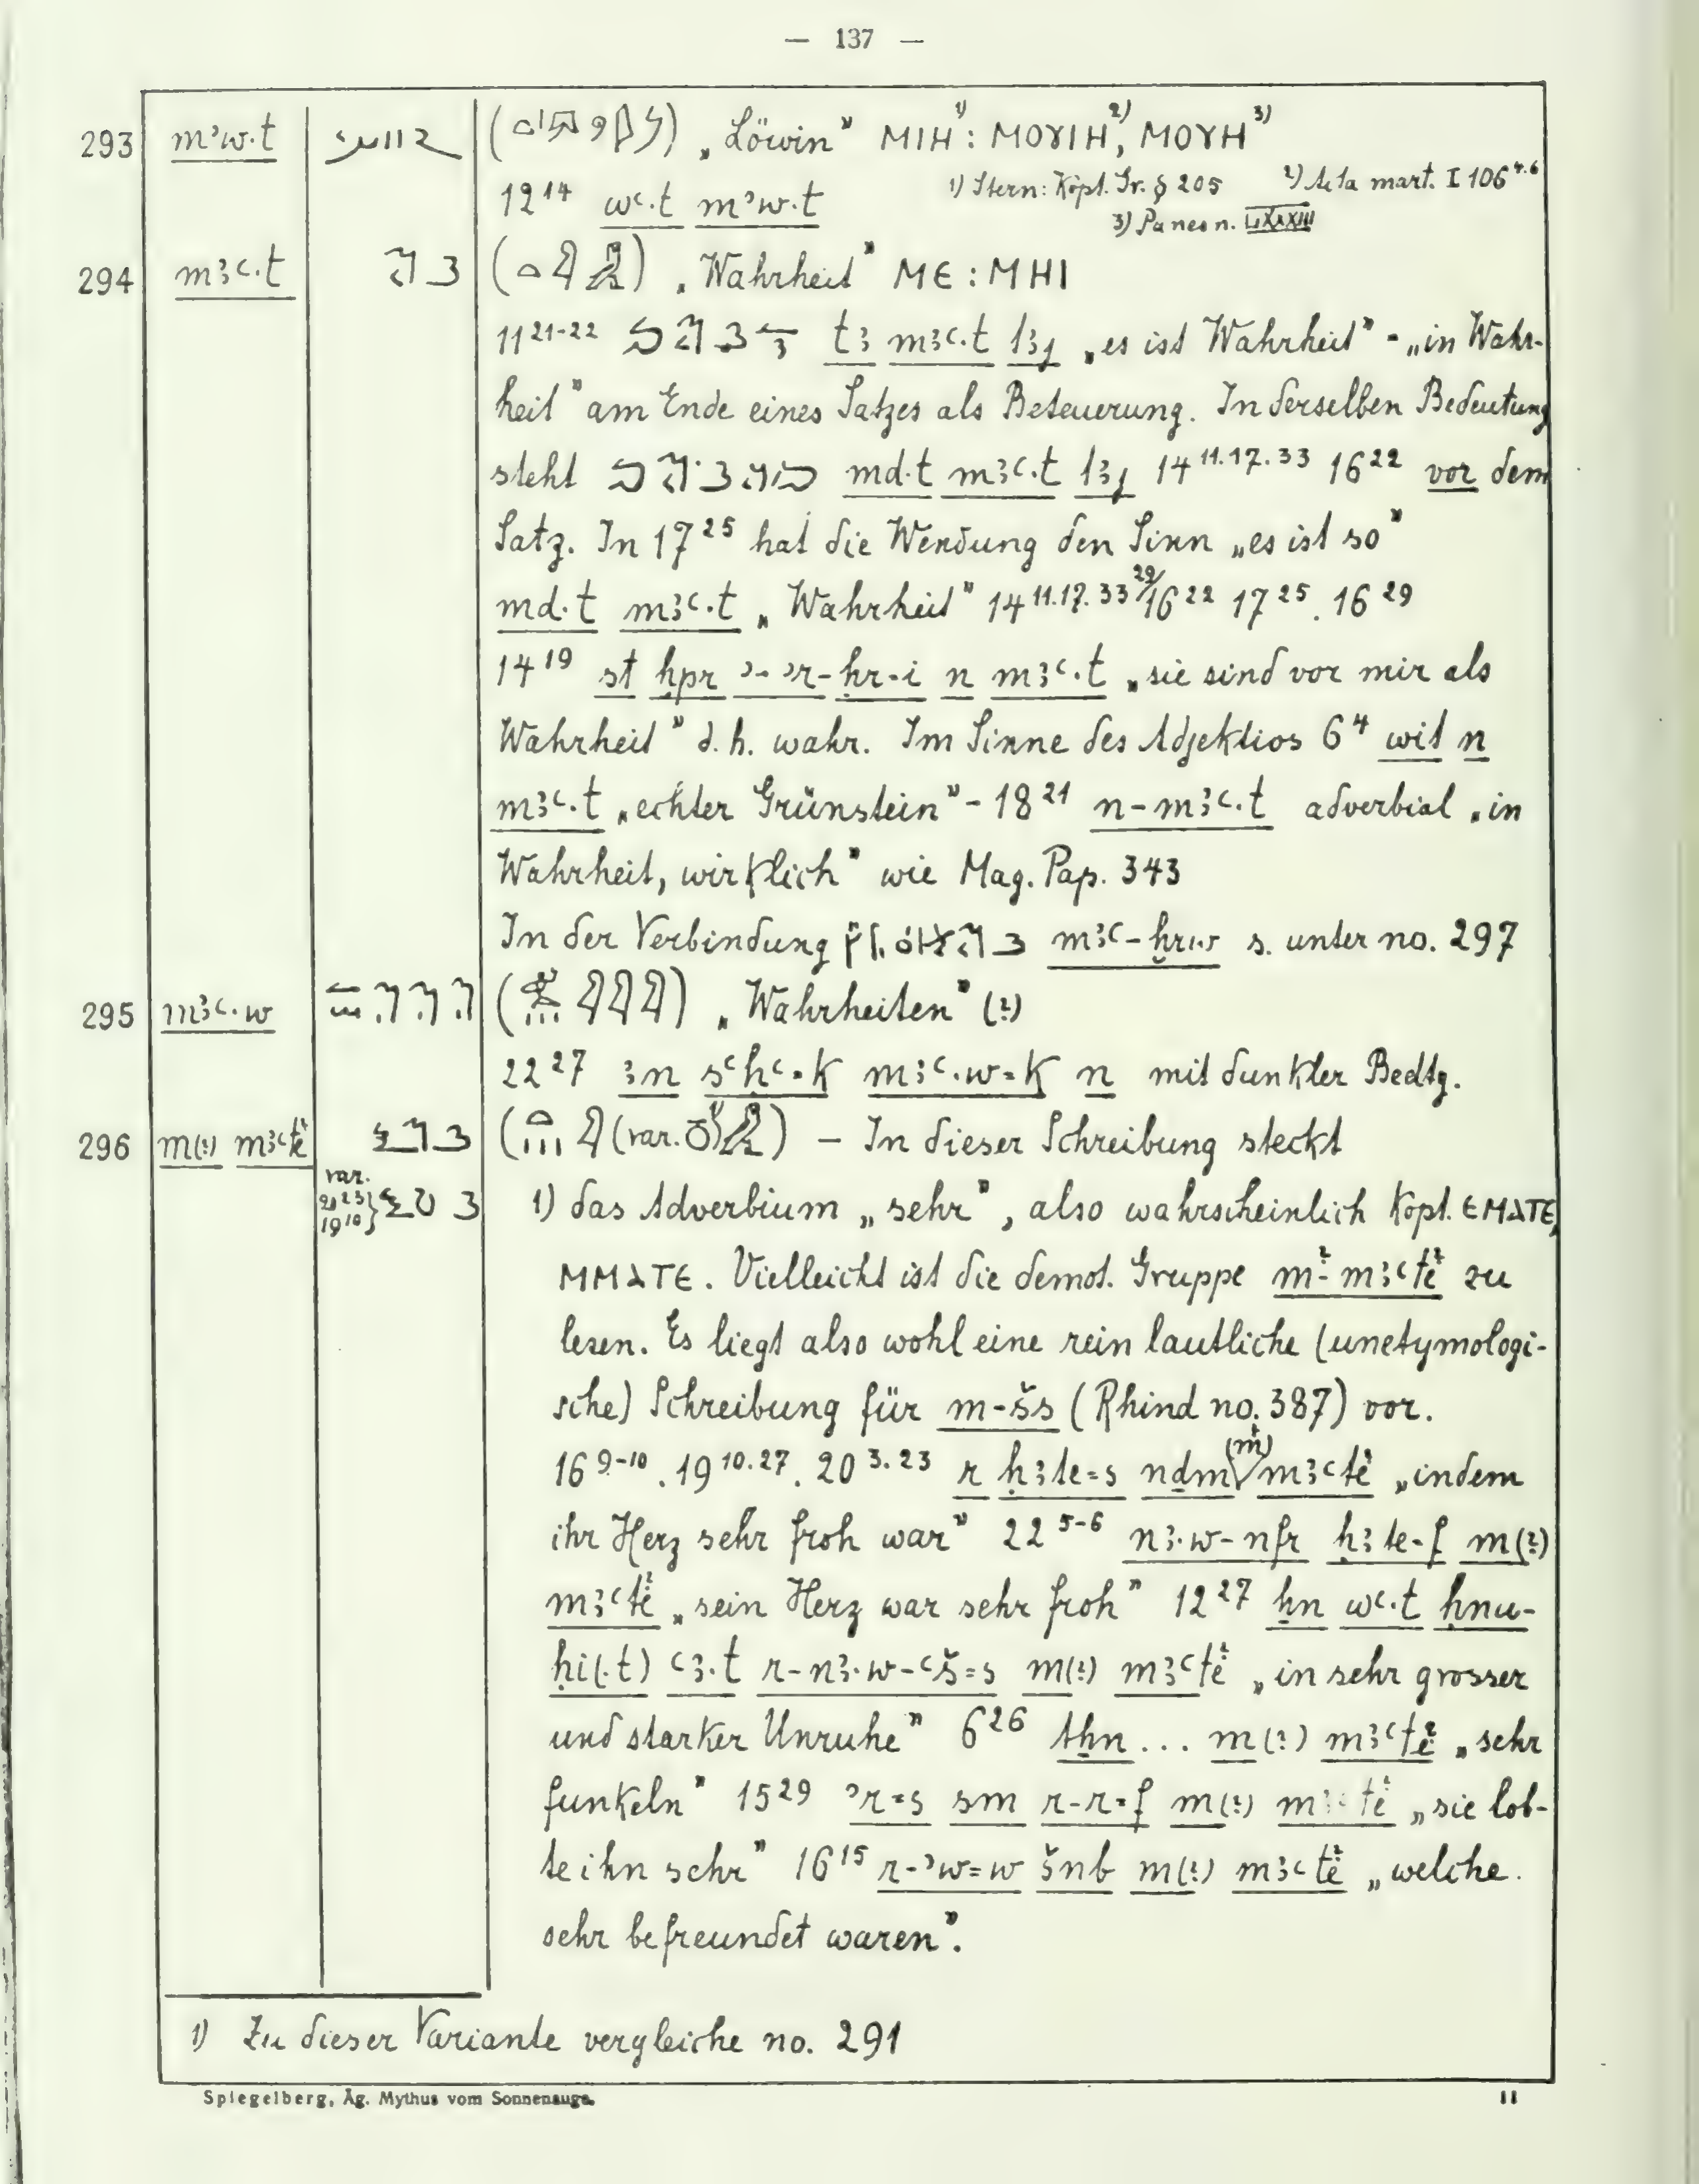 — 137 —
293 mʾw.t „Löwin” ⲘⲒⲎ¹⁾: ⲘⲞⲨⲒⲎ²⁾, ⲘⲞⲨⲎ³⁾
12¹⁴ wꜥ.t mʾw.t 1) Stern: Kopt. Gr. § 205 2) Acta mart. I 106⁴·⁶
3)
294 mꜣꜥ.t „Wahrheit” ⲘⲈ : ⲘⲎⲒ
11²¹⁻²² tꜣ mꜣꜥ.t tꜣj „es ist Wahrheit” - „in Wahr-
heit” am Ende eines Satzes als Beteuerung. In derselben Bedeutung
steht md.t mꜣꜥ.t tꜣj 14¹¹·¹⁷·³³ 16²² vor dem
Satz. In 17²⁵ hat die Wendung den Sinn „es ist so”
md.t mꜣꜥ.t „Wahrheit” 14¹¹·¹⁷·³³ ²⁹/16²² 17²⁵. 16²⁹
14¹⁹ st ḫpr ʾ-ʾr-ḥr-i n mꜣꜥ.t „sie sind vor mir als
Wahrheit” d. h. wahr. Im Sinne des Adjektivs 6⁴ wit n
mꜣꜥ.t „echter Grünstein” - 18²¹ n-mꜣꜥ.t adverbial „in
Wahrheit, wirklich” wie Mag. Pap. 343
In der Verbindung mꜣꜥ-ḫrw s. unter no. 297
295 mꜣꜥ.w „Wahrheiten” (?)
22²⁷ ꜣn sꜥḥꜥ=k mꜣꜥ.w=k n mit dunkler Bedtg.
296 m(?) mꜣꜥtė² (var. ) — In dieser Schreibung steckt
var. 20²³ 19¹⁰} 1) das Adverbium „sehr”, also wahrscheinlich kopt. ⲈⲘⲀⲦⲈ,
ⲘⲘⲀⲦⲈ. Vielleicht ist die demot. Gruppe m²-mꜣꜥtė² zu
lesen. Es liegt also wohl eine rein lautliche (unetymologi-
sche) Schreibung für m-šs (Rhind no. 387) vor.
16⁹⁻¹⁰. 19¹⁰·²⁷. 20³·²³ r ḥꜣte=s nḏm (m) mꜣꜥtė² „indem
ihr Herz sehr froh war” 22⁵⁻⁶ nꜣ.w-nfr ḥꜣte-f m(?)
mꜣꜥtė² „sein Herz war sehr froh” 12²⁷ ẖn wꜥ.t ḥnu-
ḥi(.t) ꜥꜣ.t r-nꜣ.w-ꜥš=s m(?) mꜣꜥtė² „in sehr grosser
und starker Unruhe” 6²⁶ tḥn... m(?) mꜣꜥtė² „sehr
funkeln” 15²⁹ ʾr=s sm r-r=f m(?) mꜣꜥtė² „sie lob-
te ihn sehr” 16¹⁵ r-ʾw=w šnb m(?) mꜣꜥtė² „welche
sehr befreundet waren”.
1) Zu dieser Variante vergleiche no. 291
Spiegelberg, Äg. Mythus vom Sonnenauge. 11